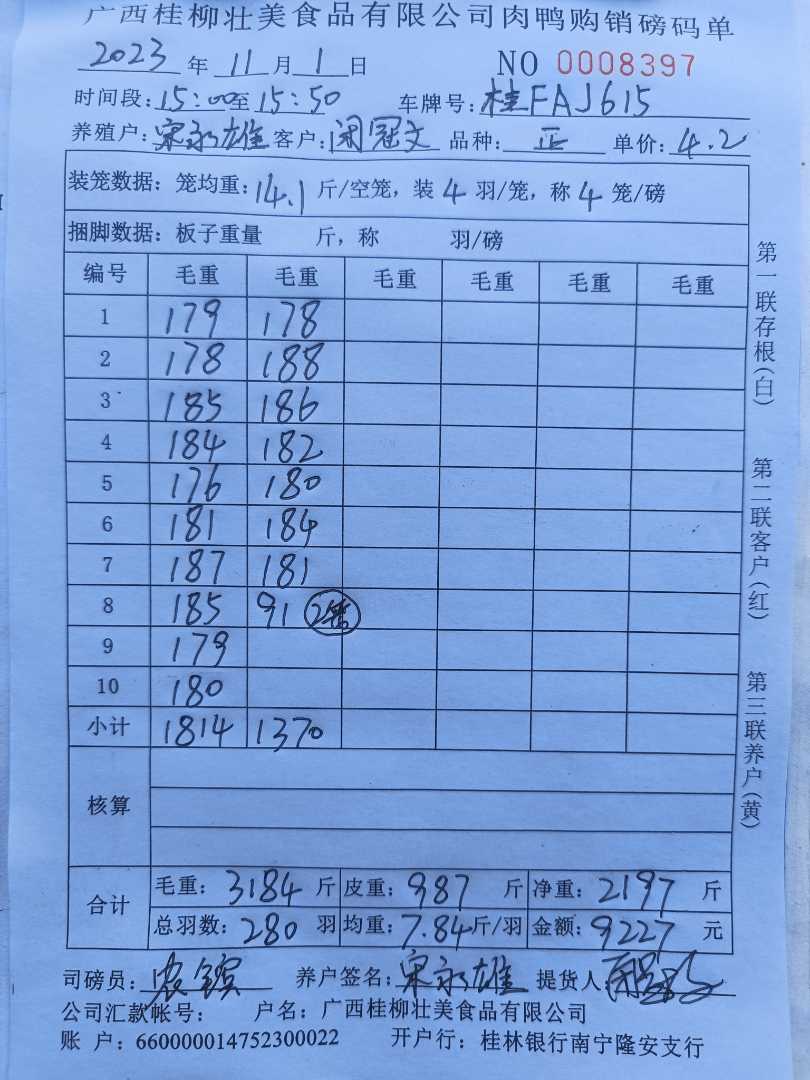 广西桂柳壮美食品有限公司肉鸭购销磅码单
2023 年 11 月 1 日 NO 0008397
时间段: 15:00 至 15:50 车牌号: 桂FAJ615
养殖户: 宋永雄 客户: 闭冠文 品种: 正 单价: 4.2
装笼数据: 笼均重: 14.1 斤/空笼, 装 4 羽/笼, 称 4 笼/磅
捆脚数据: 板子重量 斤, 称 羽/磅
编号 毛重 毛重 毛重 毛重 毛重 毛重
1 179 178
2 178 188
3 185 186
4 184 182
5 176 180
6 181 184
7 187 181
8 185 91 2笼
9 179
10 180
小计 1814 1370
核算
合计 毛重: 3184 斤 皮重: 987 斤 净重: 2197 斤
总羽数: 280 羽 均重: 7.84 斤/羽 金额: 9227 元
司磅员: 农 养户签名: 宋永雄 提货人
公司汇款帐号: 户名: 广西桂柳壮美食品有限公司
账 户: 660000014752300022 开户行: 桂林银行南宁隆安支行
第一联存根(白) 第二联客户(红) 第三联养户(黄)